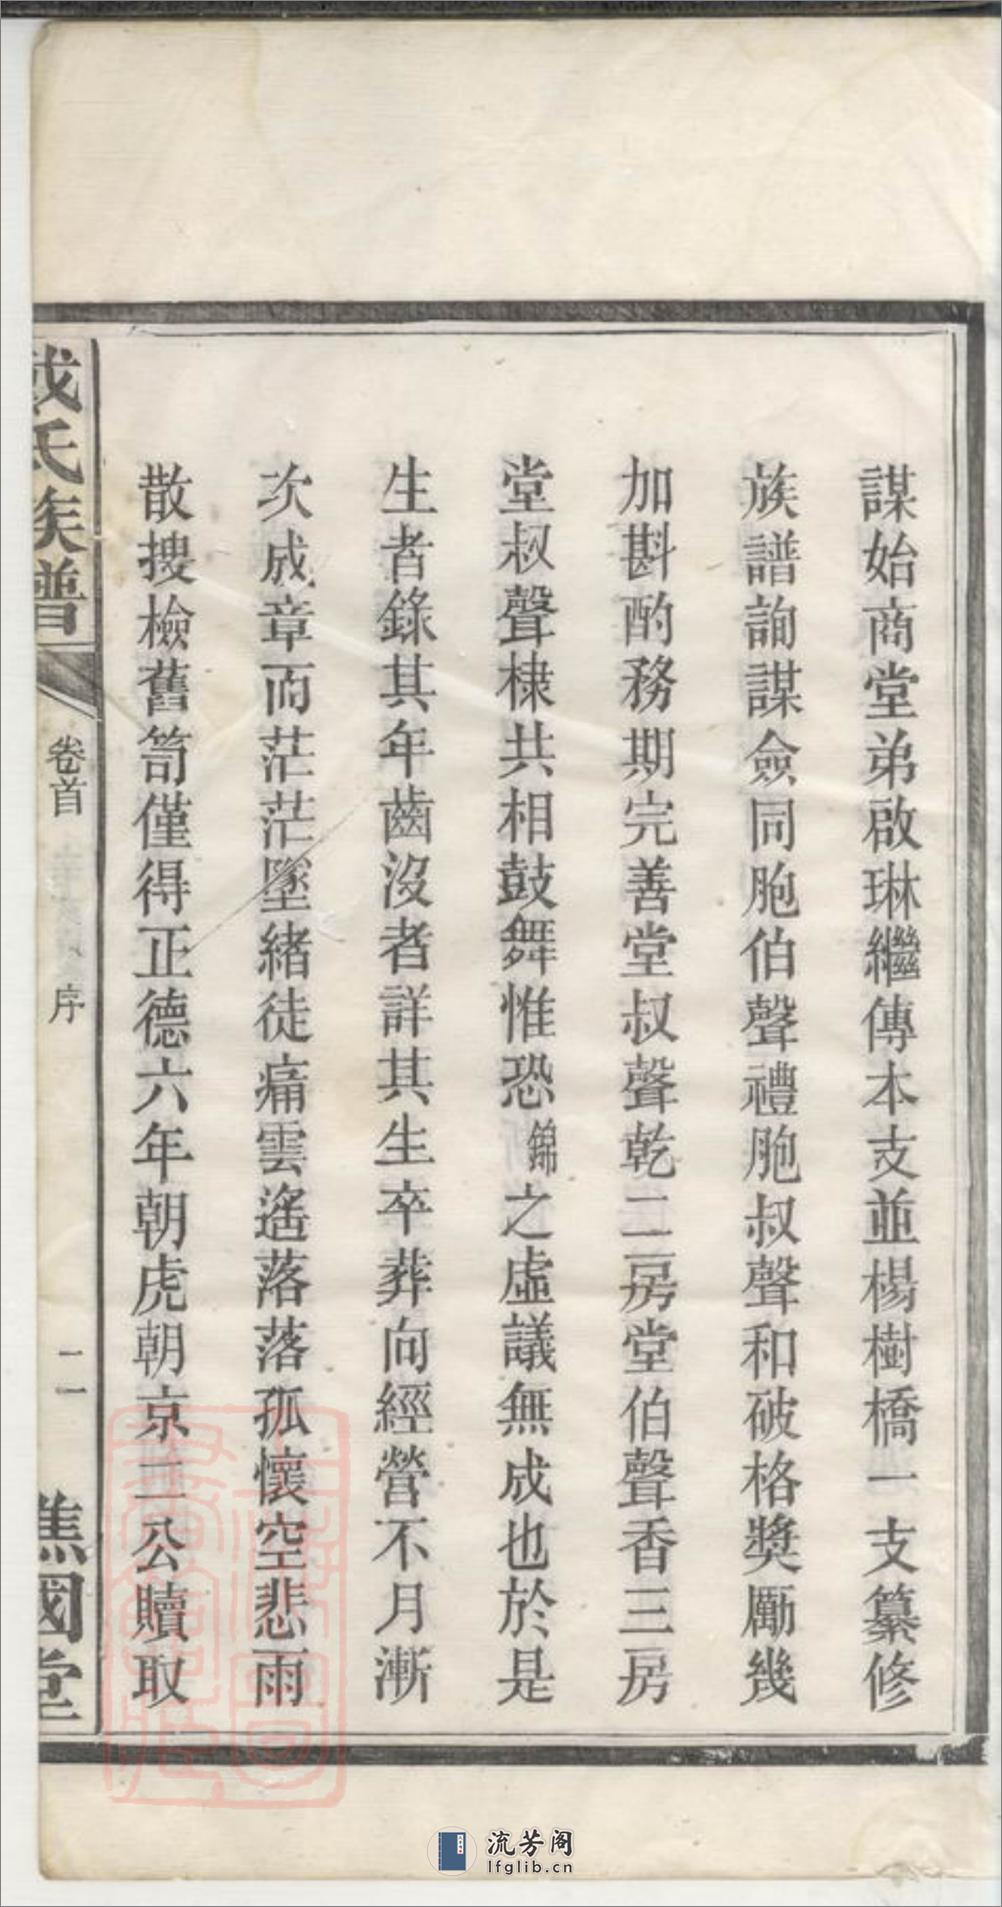 謀始商堂弟啟琳繼傳本支並楊樹橋一支纂修
族譜詢謀僉同胞伯聲禮胞叔聲和破格獎勵幾
加斟酌務期完善堂叔聲乾二房堂伯聲香三房
堂叔聲棣共相鼓舞惟恐錦之虛議無成也於是
生者錄其年齒沒者詳其生卒葬向經營不月漸
次成章而茫茫墜緒徒痛雲遙落落孤懷空悲雨
散搜檢舊笥僅得正德六年朝虎朝京二公贖取
戴氏族譜
卷首
序
二
譙國堂
流芳阁
lfglib.cn